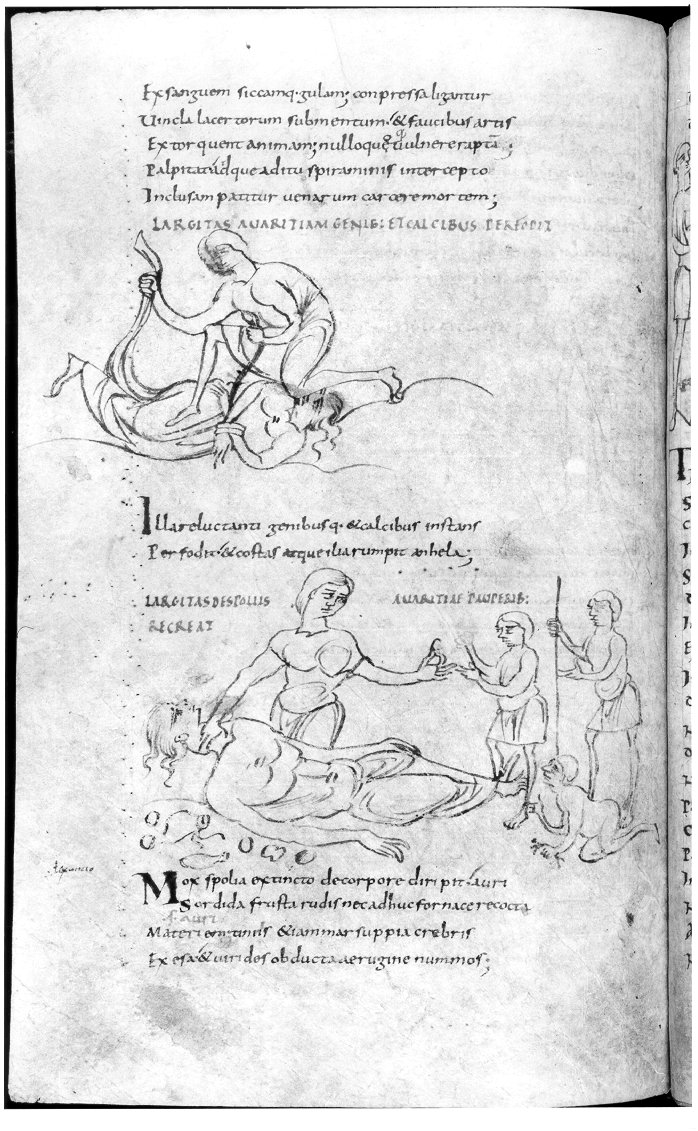 Exsanguem siccamq· gulam; conpressa ligantur
Uincla lacertorum sub mentum· & faucibus artis
Extorquent animam; nullo quę uulnere rapta;
Palpitat adque aditu spiraminis intercepto
Inclusam patitur uenarum carcere mortem;
LARGITAS AVARITIAM GENIB; ET CALCIBVS PERFODIT
Illa reluctanti genibusq· & calcibus instans
Perfodit· & costas atque ilia rumpit anhela;
LARGITAS DESPOLIIS AVARITIAE PAVPERIB:
RECREAT
Mox spolia extincto de corpore diripit· auri
Sordida frusta rudis nec adhuc fornace recocta
s. auri
Materiem tiniis & iam marsuppia crebris
Exesa· & uirides obducta aerugine nummos;